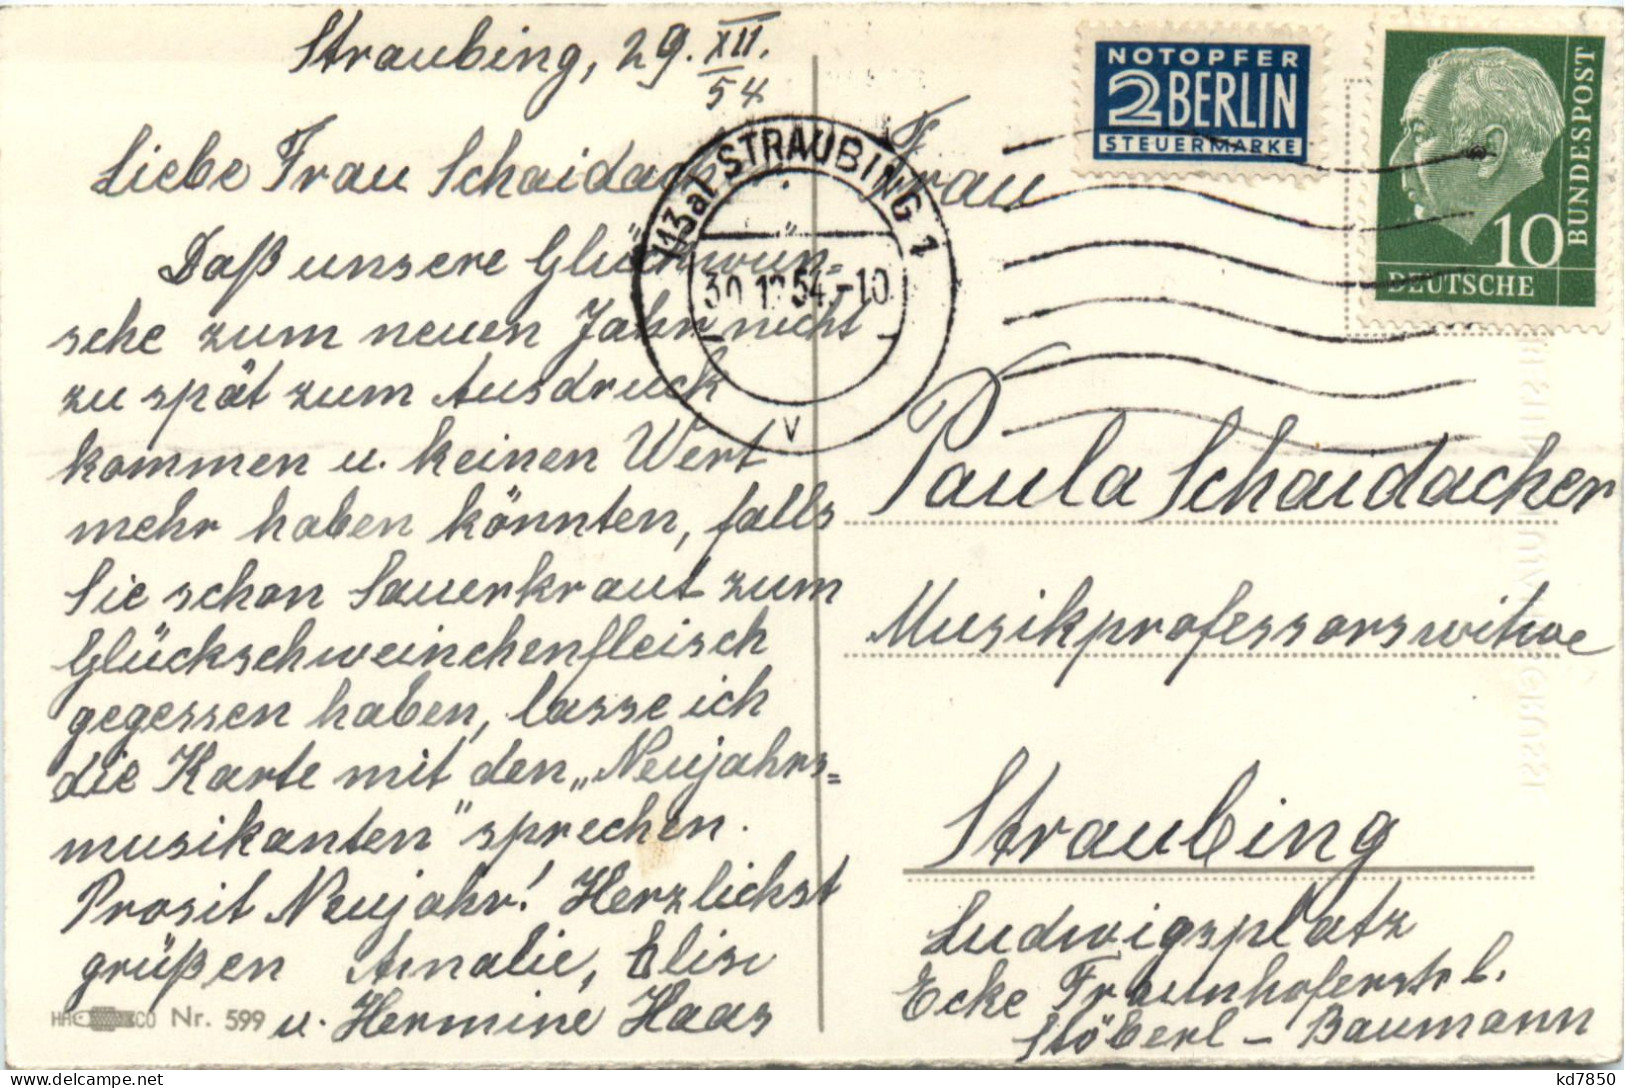 Straubing, 29. XII.
54
Liebe Frau Schaidacker
Daß unsere Glückwün-
sche zum neuen Jahr nicht
zu spät zum Ausdruck
kommen u. keinen Wert
mehr haben könnten, falls
Sie schon Sauerkraut zum
Glückschweinchenfleisch
gegessen haben, lasse ich
die Karte mit den „Neujahrs=
musikanten" sprechen.
Prosit Neujahr! Herzlichst
grüßen Amalie, Elise
u. Hermine Haas
HACO Nr. 599
13a STRAUBING 1
30.12.54.-10
v
NOTOPFER
2 BERLIN
STEUERMARKE
10
DEUTSCHE
BUNDESPOST
Frau
Paula Schaidacker
Musikprofessorswitwe
Straubing
Ludwigsplatz
Ecke Fraunhoferstr b.
Stöberl - Baumann
kd7850